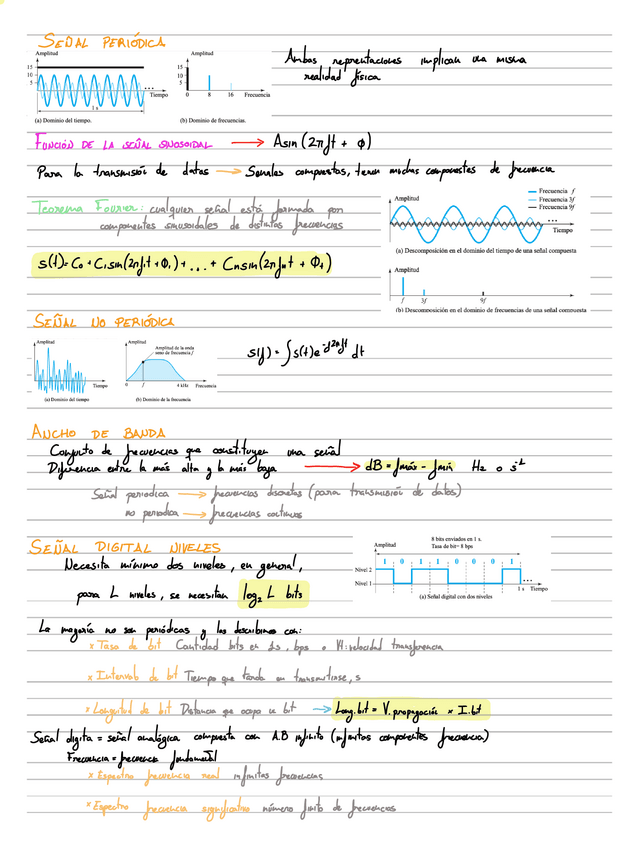 SEÑAL PERIÓDICA
Amplitud
15
10
5
Tiempo
1 s
(a) Dominio del tiempo.
Amplitud
15
10
5
0 8 16 Frecuencia
(b) Dominio de frecuencias.
Ambas representaciones implican una misma
realidad física
FUNCIÓN DE LA SEÑAL SINOSOIDAL → Asin(2πft + ϕ)
Para la transmisión de datos → Señales compuestas, tienen muchas componentes de frecuencia
Teorema Fourier: cualquier señal está formada por
componentes sinusoidales de distintas frecuencias
S(t) = C0 + C1sin(2πf1t + ϕ1) + ... + Cnsin(2πfnt + ϕ1)
Amplitud
Frecuencia f
Frecuencia 3f
Frecuencia 9f
Tiempo
(a) Descomposición en el dominio del tiempo de una señal compuesta
Amplitud
f 3f 9f Frecuencia
(b) Descomposición en el dominio de frecuencias de una señal compuesta
SEÑAL NO PERIÓDICA
Amplitud
Tiempo
(a) Dominio del tiempo
Amplitud
Amplitud de la onda
seno de frecuencia f
0 f 4 kHz Frecuencia
(b) Dominio de la frecuencia
S(f) = ∫s(t)e^-j2πft dt
ANCHO DE BANDA
Conjunto de frecuencias que constituyen una señal
Diferencia entre la más alta y la más baja → dB = fmáx - fmín Hz o s^-1
Señal periodica → frecuencias discretas (para transmisión de datos)
no periodica → frecuencias continuas
SEÑAL DIGITAL NIVELES
Necesita mínimo dos niveles, en general,
para L niveles, se necesitan log2 L bits
8 bits enviados en 1 s.
Tasa de bit= 8 bps
Amplitud
1 0 1 1 0 0 0 1
Nivel 2
Nivel 1
1 s Tiempo
(a) Señal digital con dos niveles
La mayoría no son periódicas y las describimos con:
x Tasa de bit Cantidad bits en 1s, bps o Vt:velocidad transferencia
x Intervalo de bit Tiempo que tarda en transmitirse, s
x Longitud de bit Distancia que ocupa un bit → Long.bit = V.propagación x I.bit
Señal digital = señal analógica compuesta con A.B infinito (infinitas componentes frecuencia)
Frecuencia = frecuencia fundamental
x Espectro frecuencia real infinitas frecuencias
x Espectro frecuencia significativo número finito de frecuencias